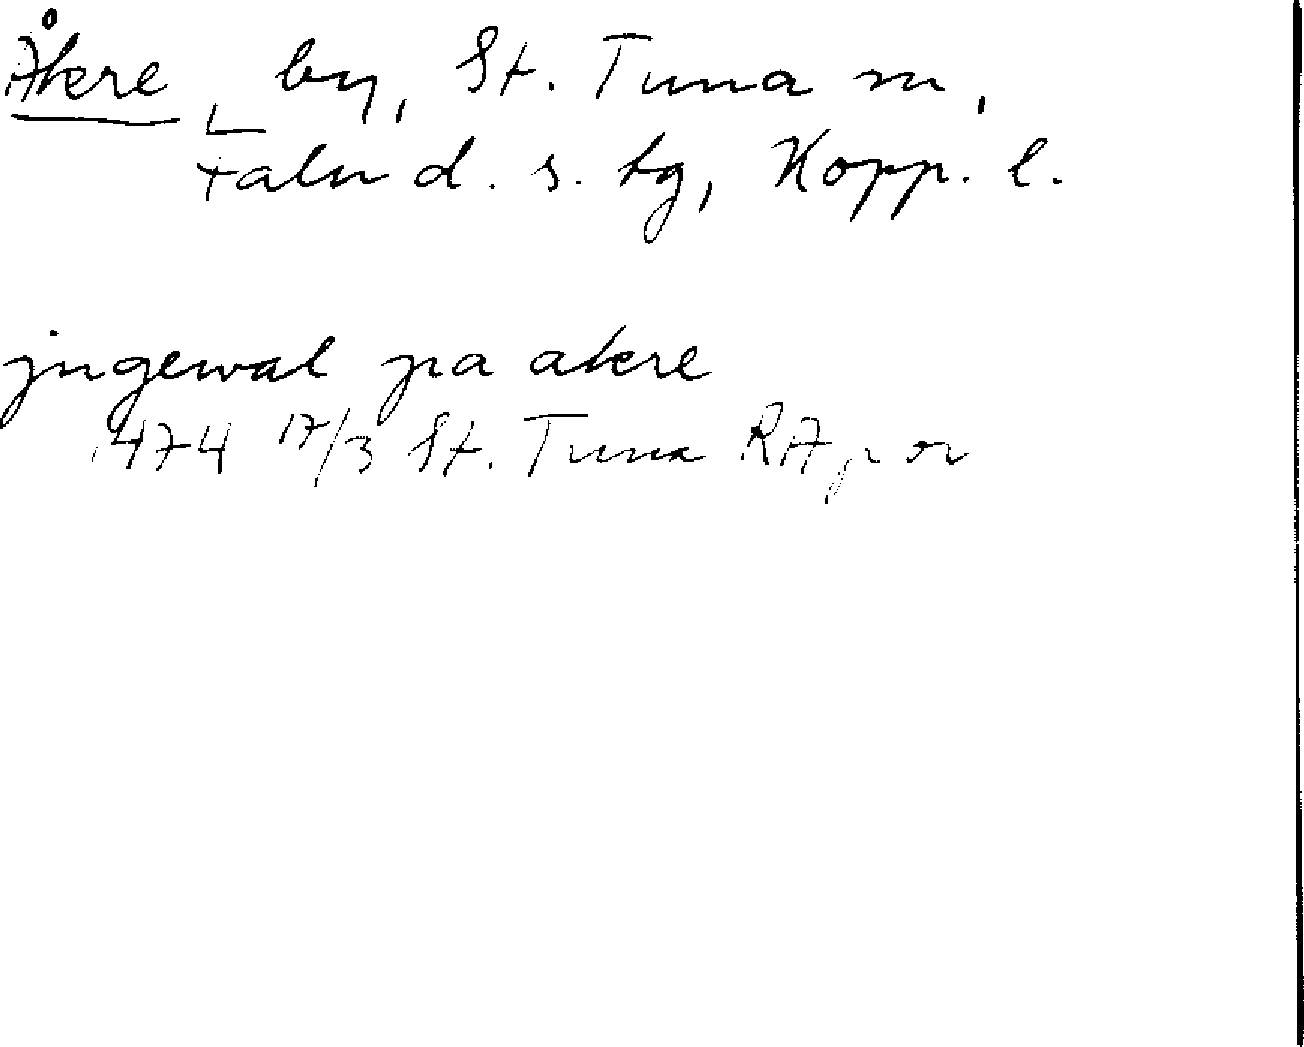 Åkere, by, St. Tuna sn,
Falu d. s. tg, Kopp. l.
jngewal pa akere
1474 17/3 St. Tuna RAp or